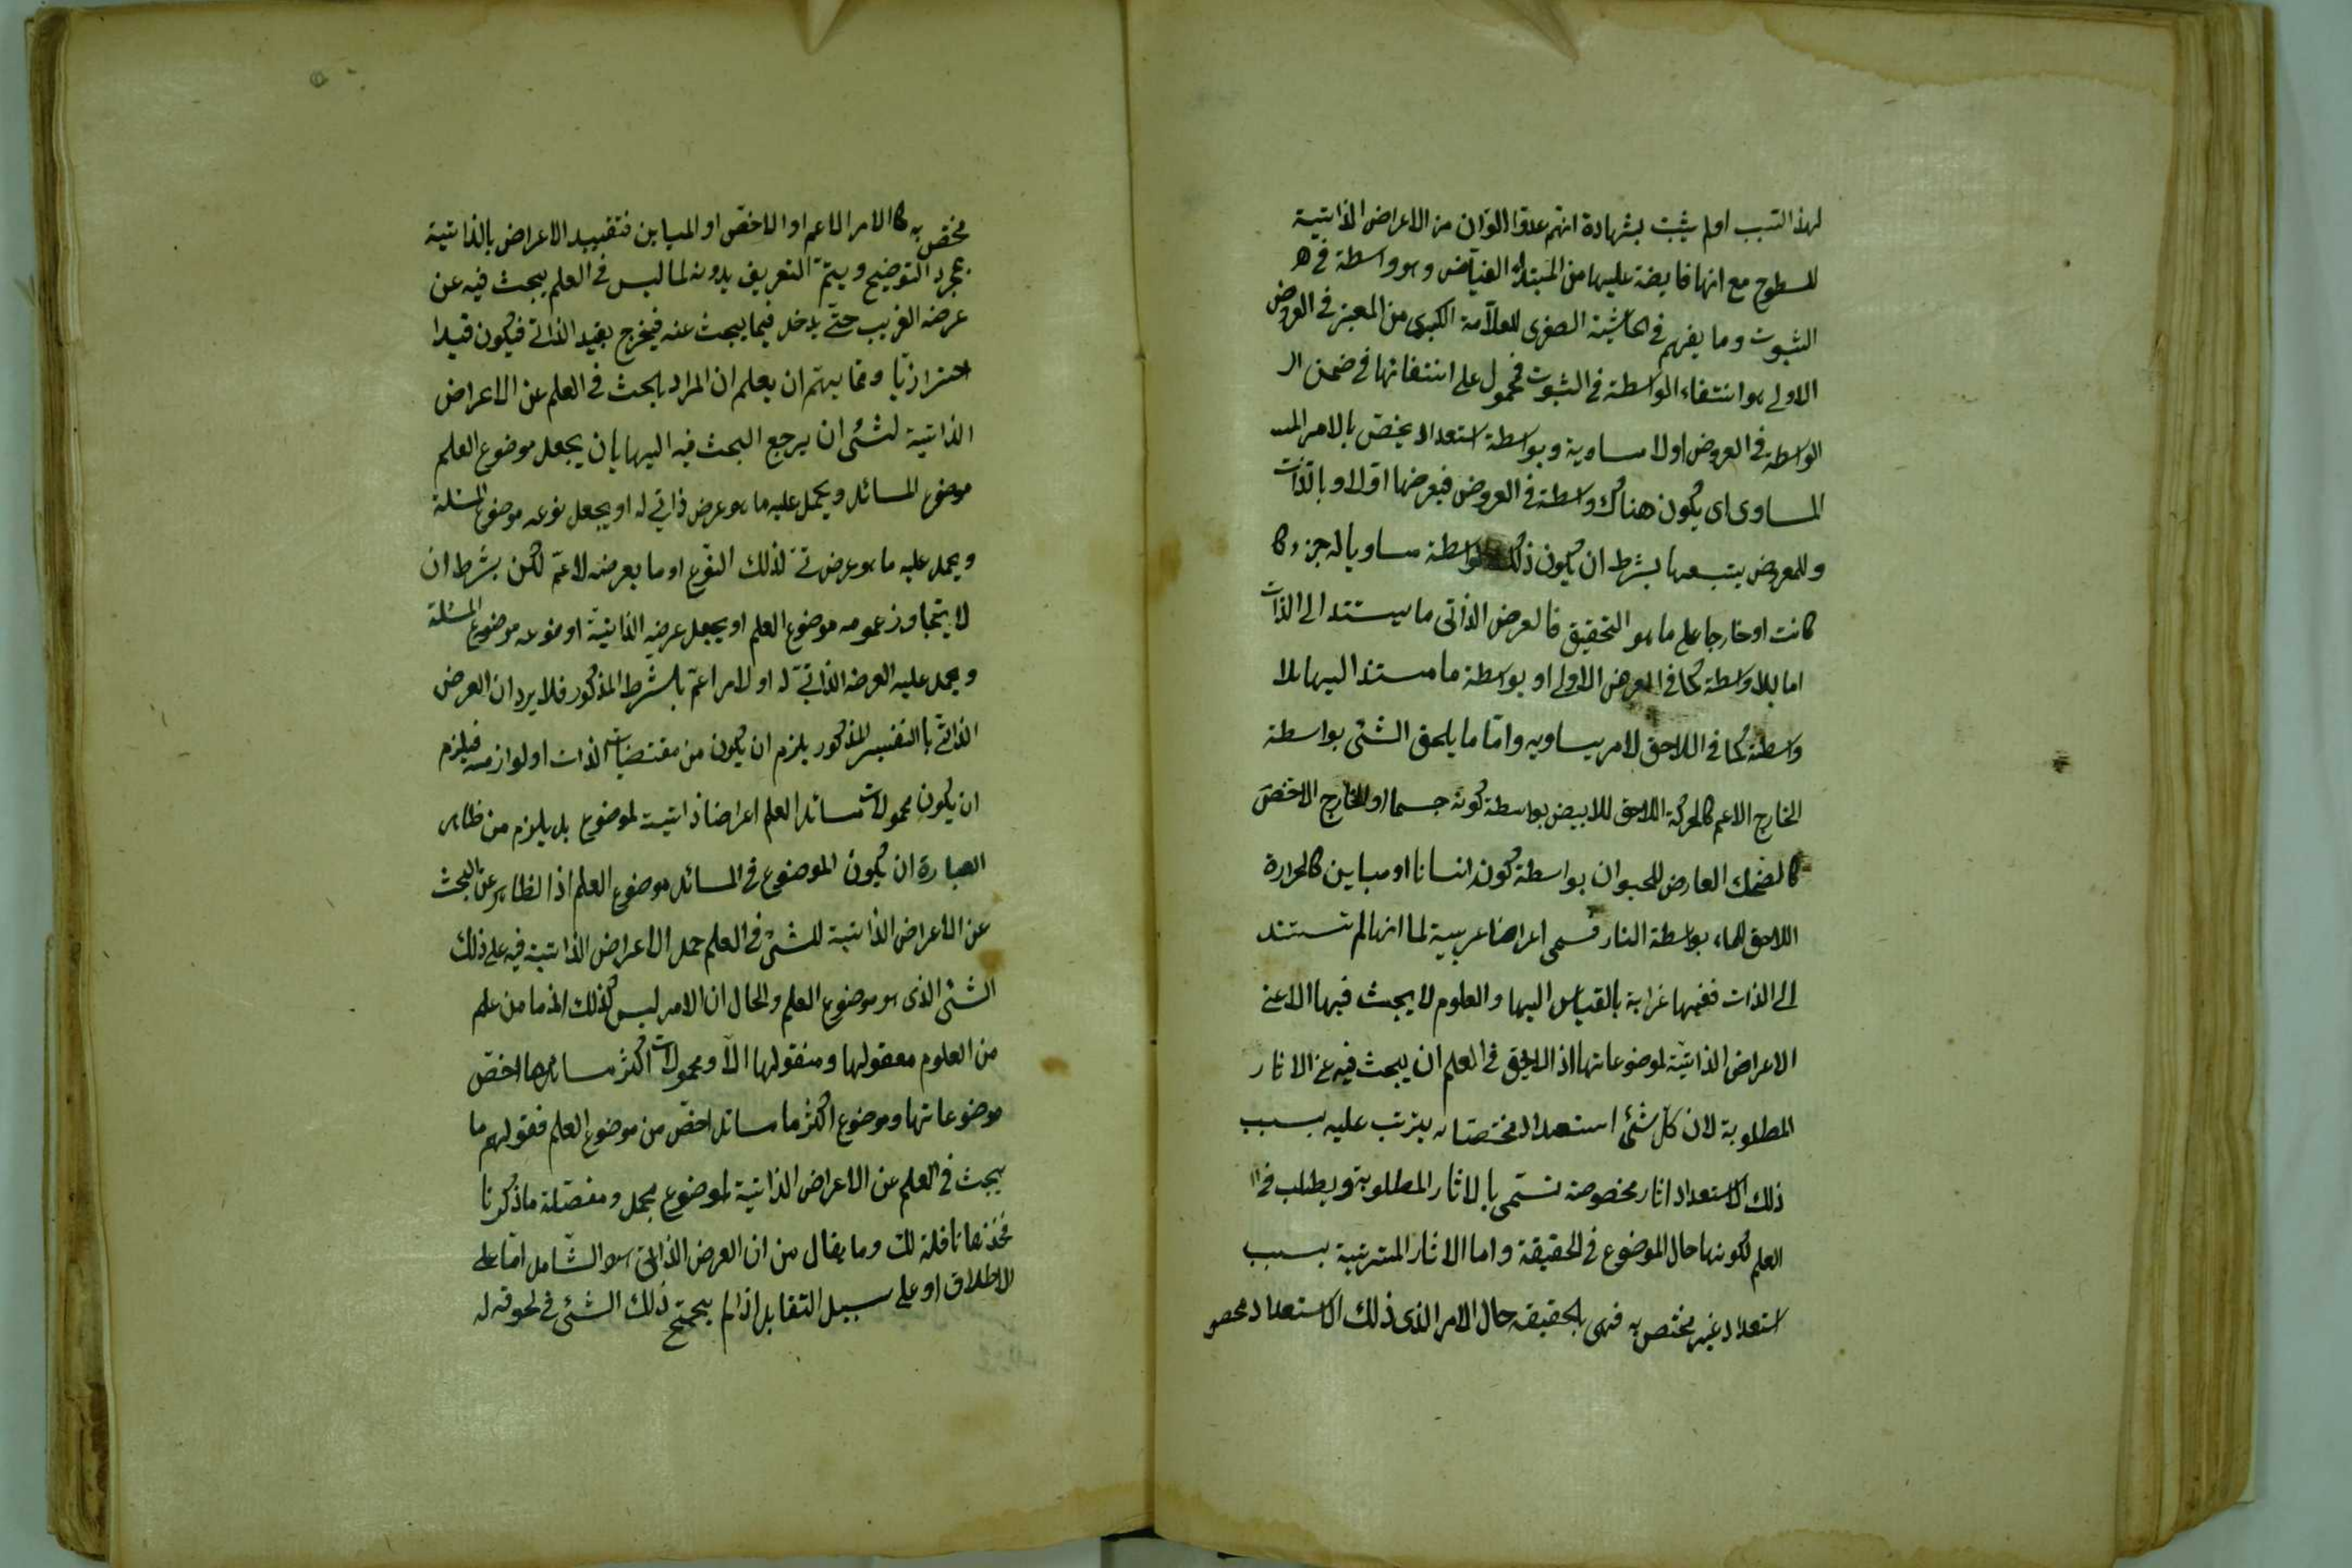 لهذا السبب اولم يثبت بشهادة انهم عدوا الالوان من الاعراض الذاتية
للسطوح مع انها فايضة عليها من المبتداء الفياض وهو واسطة في
الثبوت وما يفهم في الحاشية الصغرى للعلامة الكبرى من المعتبر في العروض
الاولى هو انتفاء الواسطة في الثبوت فمحمول على انتفائها في ضمن
الواسطة في العروض اولا مساوية وبواسطة استعداد يختص بالامر
المساوى اى يكون هناك واسطة في العروض فيعرضها اولا وبالذات
وللمعروض يتبعها بشرط ان يكون ذلك الواسطة مساويا له جزء كا
كانت او خارجا على ما هو التحقيق فالعرض الذاتى ما يستند الى الذات
اما بلا واسطة كما في العرض الاولى او بواسطة ما مستندا اليها بلا
واسطة كما في اللاحق لامر يساويه واما ما يلحق الشئ بواسطة
الخارج الاعم كالحركة اللاحق للابيض بواسطة كونه جسما او الخارج الاخص
كالضحك العارض للحيوان بواسطة كونه انسانا او مباين كالحرارة
اللاحق للماء بواسطة النار فسمى اعراضا غريبة لما انها لم تستند
الى الذات ففيها غرابة بالقياس اليها والعلوم لا يبحث فيها الا عن
الاعراض الذاتية لموضوعاتها اذ اللايق في العلم ان يبحث فيه عن الاثار
المطلوبة لان كل شئ استعدادا مختصا به يترتب عليه بسبب
ذلك الاستعداد اثار مخصوصة تسمى بالاثار المطلوبة ويطلب في
العلم لكونها حال الموضوع في الحقيقة واما الاثار المترتبة بسبب
استعداد غير مختص به فهى بالحقيقة حال الامر الذى ذلك الاستعداد
مختص به كالامر الاعم او الاخص او المباين فتقييد الاعراض بالذاتية
بمجرد التوضيح ويتم التعريف بدونه لما ليس في العلم يبحث فيه عن
عرضه الغريب حتى يدخل فيما يبحث عنه فيخرج بقيد الذاتى فيكون قيدا
احترازيا ومما يهتم ان يعلم ان المراد بالبحث في العلم عن الاعراض
الذاتية لشئ ان يرجع البحث فيه اليها بان يجعل موضوع العلم
موضوع المسائل ويحمل عليه ما هو عرض ذاتي له او يجعل نوعه موضوع المسئلة
ويحمل عليه ما هو عرض لذلك النوع او ما يعرضه لاعم لكن بشرط ان
لا يتجاوز عمومه موضوع العلم او يجعل عرضه الذاتية او نوعه موضوع المسئلة
ويحمل عليه العرض الذاتي له او لامر اعم بالشرط المذكور فلا يرد ان العرض
الذاتى بالتفسير المذكور يلزم ان يكون من مقتضيات الذات او لوازمه فيلزم
ان يكون محمولات مسائل العلم اعراضا ذاتية لموضوع بل يلزم من ظاهر
العبارة ان يكون الموضوع في المسائل موضوع العلم اذ الظاهر عن البحث
عن الاعراض الذاتية للشئ في العلم حمل الاعراض الذاتية فيه على ذلك
الشئ الذى هو موضوع العلم والحال ان الامر ليس كذلك اذ ما من علم
من العلوم معقولها ومنقولها الا ومحمولات اكثر مسائلها اخص
موضوعاتها وموضوع اكثر ما مسائل اخص من موضوع العلم فقولهم ما
يبحث في العلم عن الاعراض الذاتية لموضوع مجمل ومفصله ما ذكرنا
فخذها نافلة لك وما يقال من ان العرض الذاتى هو الشامل اما على
الاطلاق او على سبيل التقابل اذ لم يحتج ذلك الشئ في لحوقه له